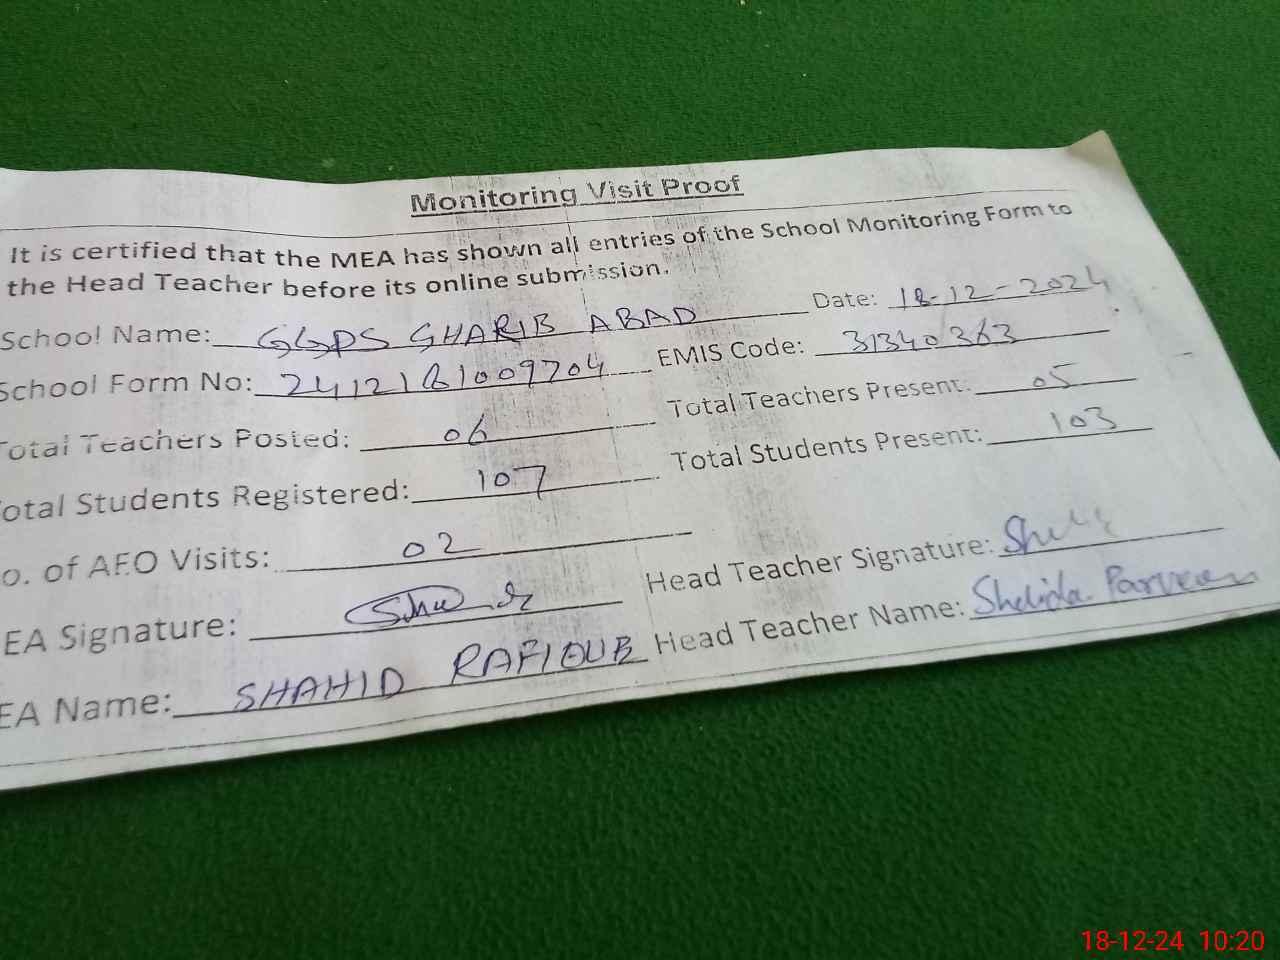 Monitoring Visit Proof
It is certified that the MEA has shown all entries of the School Monitoring Form to
the Head Teacher before its online submission.
School Name: GGPS GHARIB ABAD Date: 18-12-2024
School Form No: 2412181009704 EMIS Code: 31340363
Total Teachers Posted: 06 Total Teachers Present: 05
otal Students Registered: 107 Total Students Present: 103
o. of AEO Visits: 02
EA Signature: Head Teacher Signature:
EA Name: SHAHID Head Teacher Name: Parveen
18-12-24 10:20